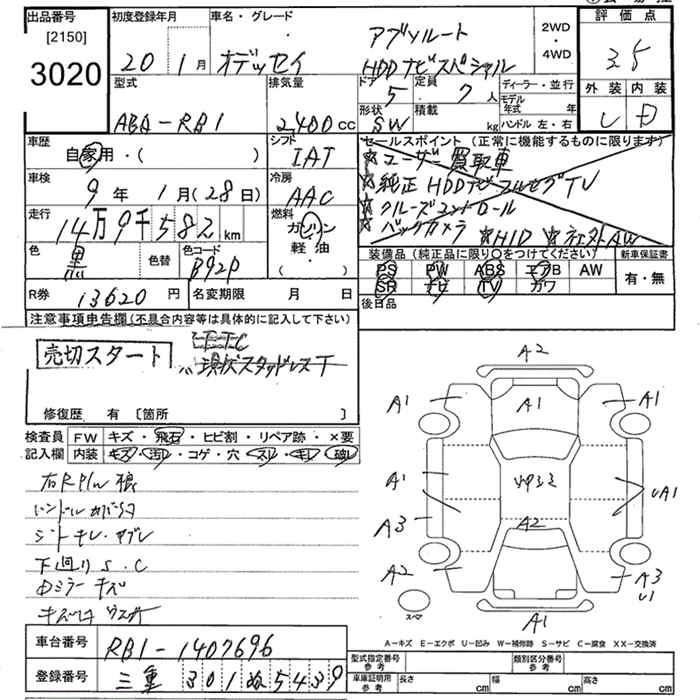 出品番号
[2150]
3020
初度登録年月
20 1月
車名・グレード
オデッセイ
アブソルート
HDDナビスペシャル
2WD
・
4WD
評価点
3.5
外装 内装
型式
ABA-RB1
排気量
2400cc
ドア 5
定員 7人
形状 SW
積載 kg
ディーラー・並行
モデル年式 年
ハンドル 左・右
車歴
自家用・( )
シフト
IAT
車検
9年 1月(28日)
冷房
AAC
走行
14万9千582km
燃料
ガソリン
軽油
・
色
黒
色替
色コード
B92P
R券 13620円
名変期限 月 日
セールスポイント (正常に機能するものに限ります)
☆ユーザー買取車
☆純正HDDナビフルセグTV
☆クルーズコントロール
☆バックカメラ ☆HID
装備品 (純正品に限り○をつけてください)
新車保証書
PS PW ABS エアB AW
SR ナビ TV カワ
有・無
後日品
注意事項申告欄(不具合内容等は具体的に記入して下さい)
売切スタート
ETC
現状スタッドレスT
修復歴 有 [箇所 ]
検査員
記入欄
FW キズ・飛石・ヒビ割・リペア跡・×要
内装 キズ・汚レ・コゲ・穴・スレ・キレ・破レ
シートキレ・
下廻りS.C
ミラーキズ
A2
A1
A1
A1
A1
A3
A2
A2
A1
A3
U1
A1
スペア
A-キズ E-エクボ U-凹み W-補修跡 S-サビ C-腐食 XX-交換済
車台番号 RB1-1407696
登録番号 三重 301ぬ5439
型式指定番号
参考
類別区分番号
参考
車庫証明用
参考
長さ cm
幅 cm
高さ cm